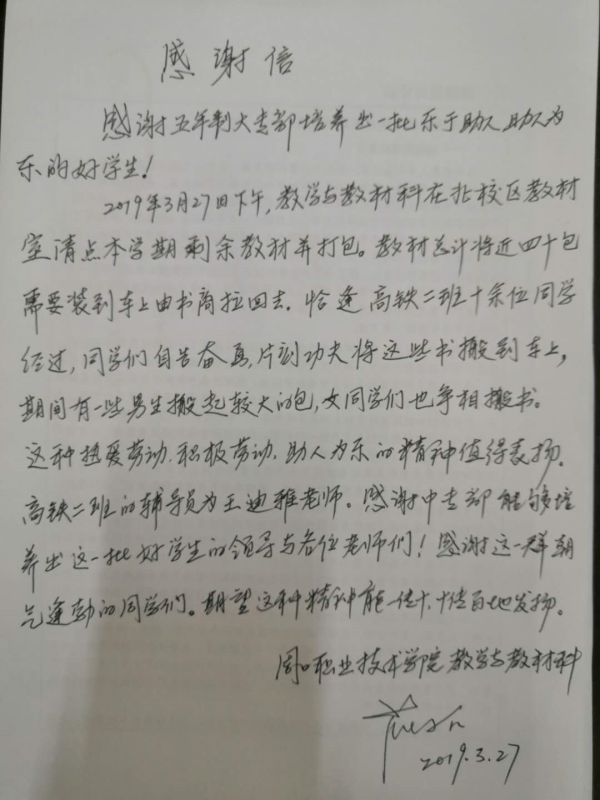 感谢信
感谢五年制大专部培养出一批乐于助人助人为
乐的好学生!
2019年3月27日下午,教学与教材科在北校区教材
室清点本学期剩余教材并打包。教材总计将近四十包
需要装到车上由书商拉回去。恰逢高铁二班十余位同学
经过,同学们自告奋勇,片刻功夫将这些书搬到车上,
期间有一些男生搬起较大的包,女同学们也争相搬书。
这种热爱劳动、积极劳动、助人为乐的精神值得表扬。
高铁二班的辅导员为王迪雅老师。感谢中专部能够培
养出这一批好学生的领导与各位老师们!感谢这一群朝
气蓬勃的同学们。期望这种精神能一传十、十传百地发扬。
周口职业技术学院教学与教材科
2019.3.27